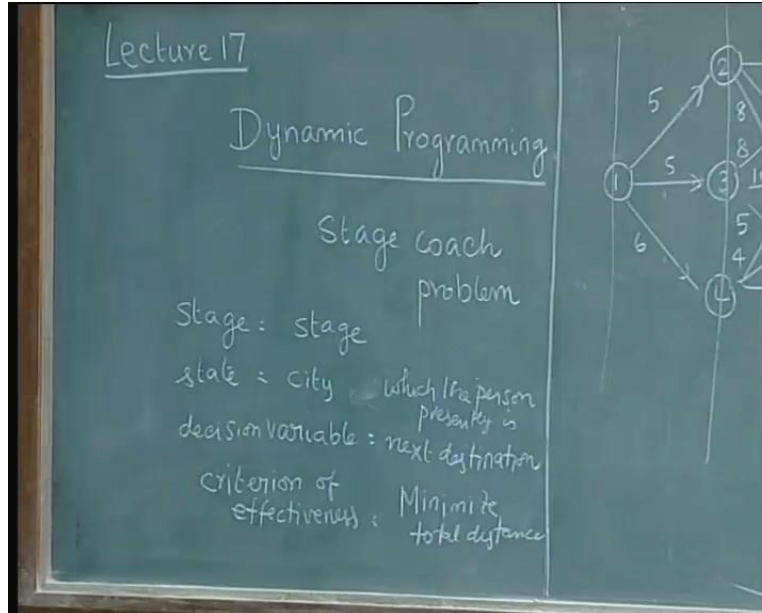 Lecture 17
Dynamic Programming
Stage coach
problem
Stage : stage
state : city which the person
presently is
decision variable : next destination
criterion of
effectiveness : Minimize
total distance
2
5
8
8
1
5
3
6
5
4
4